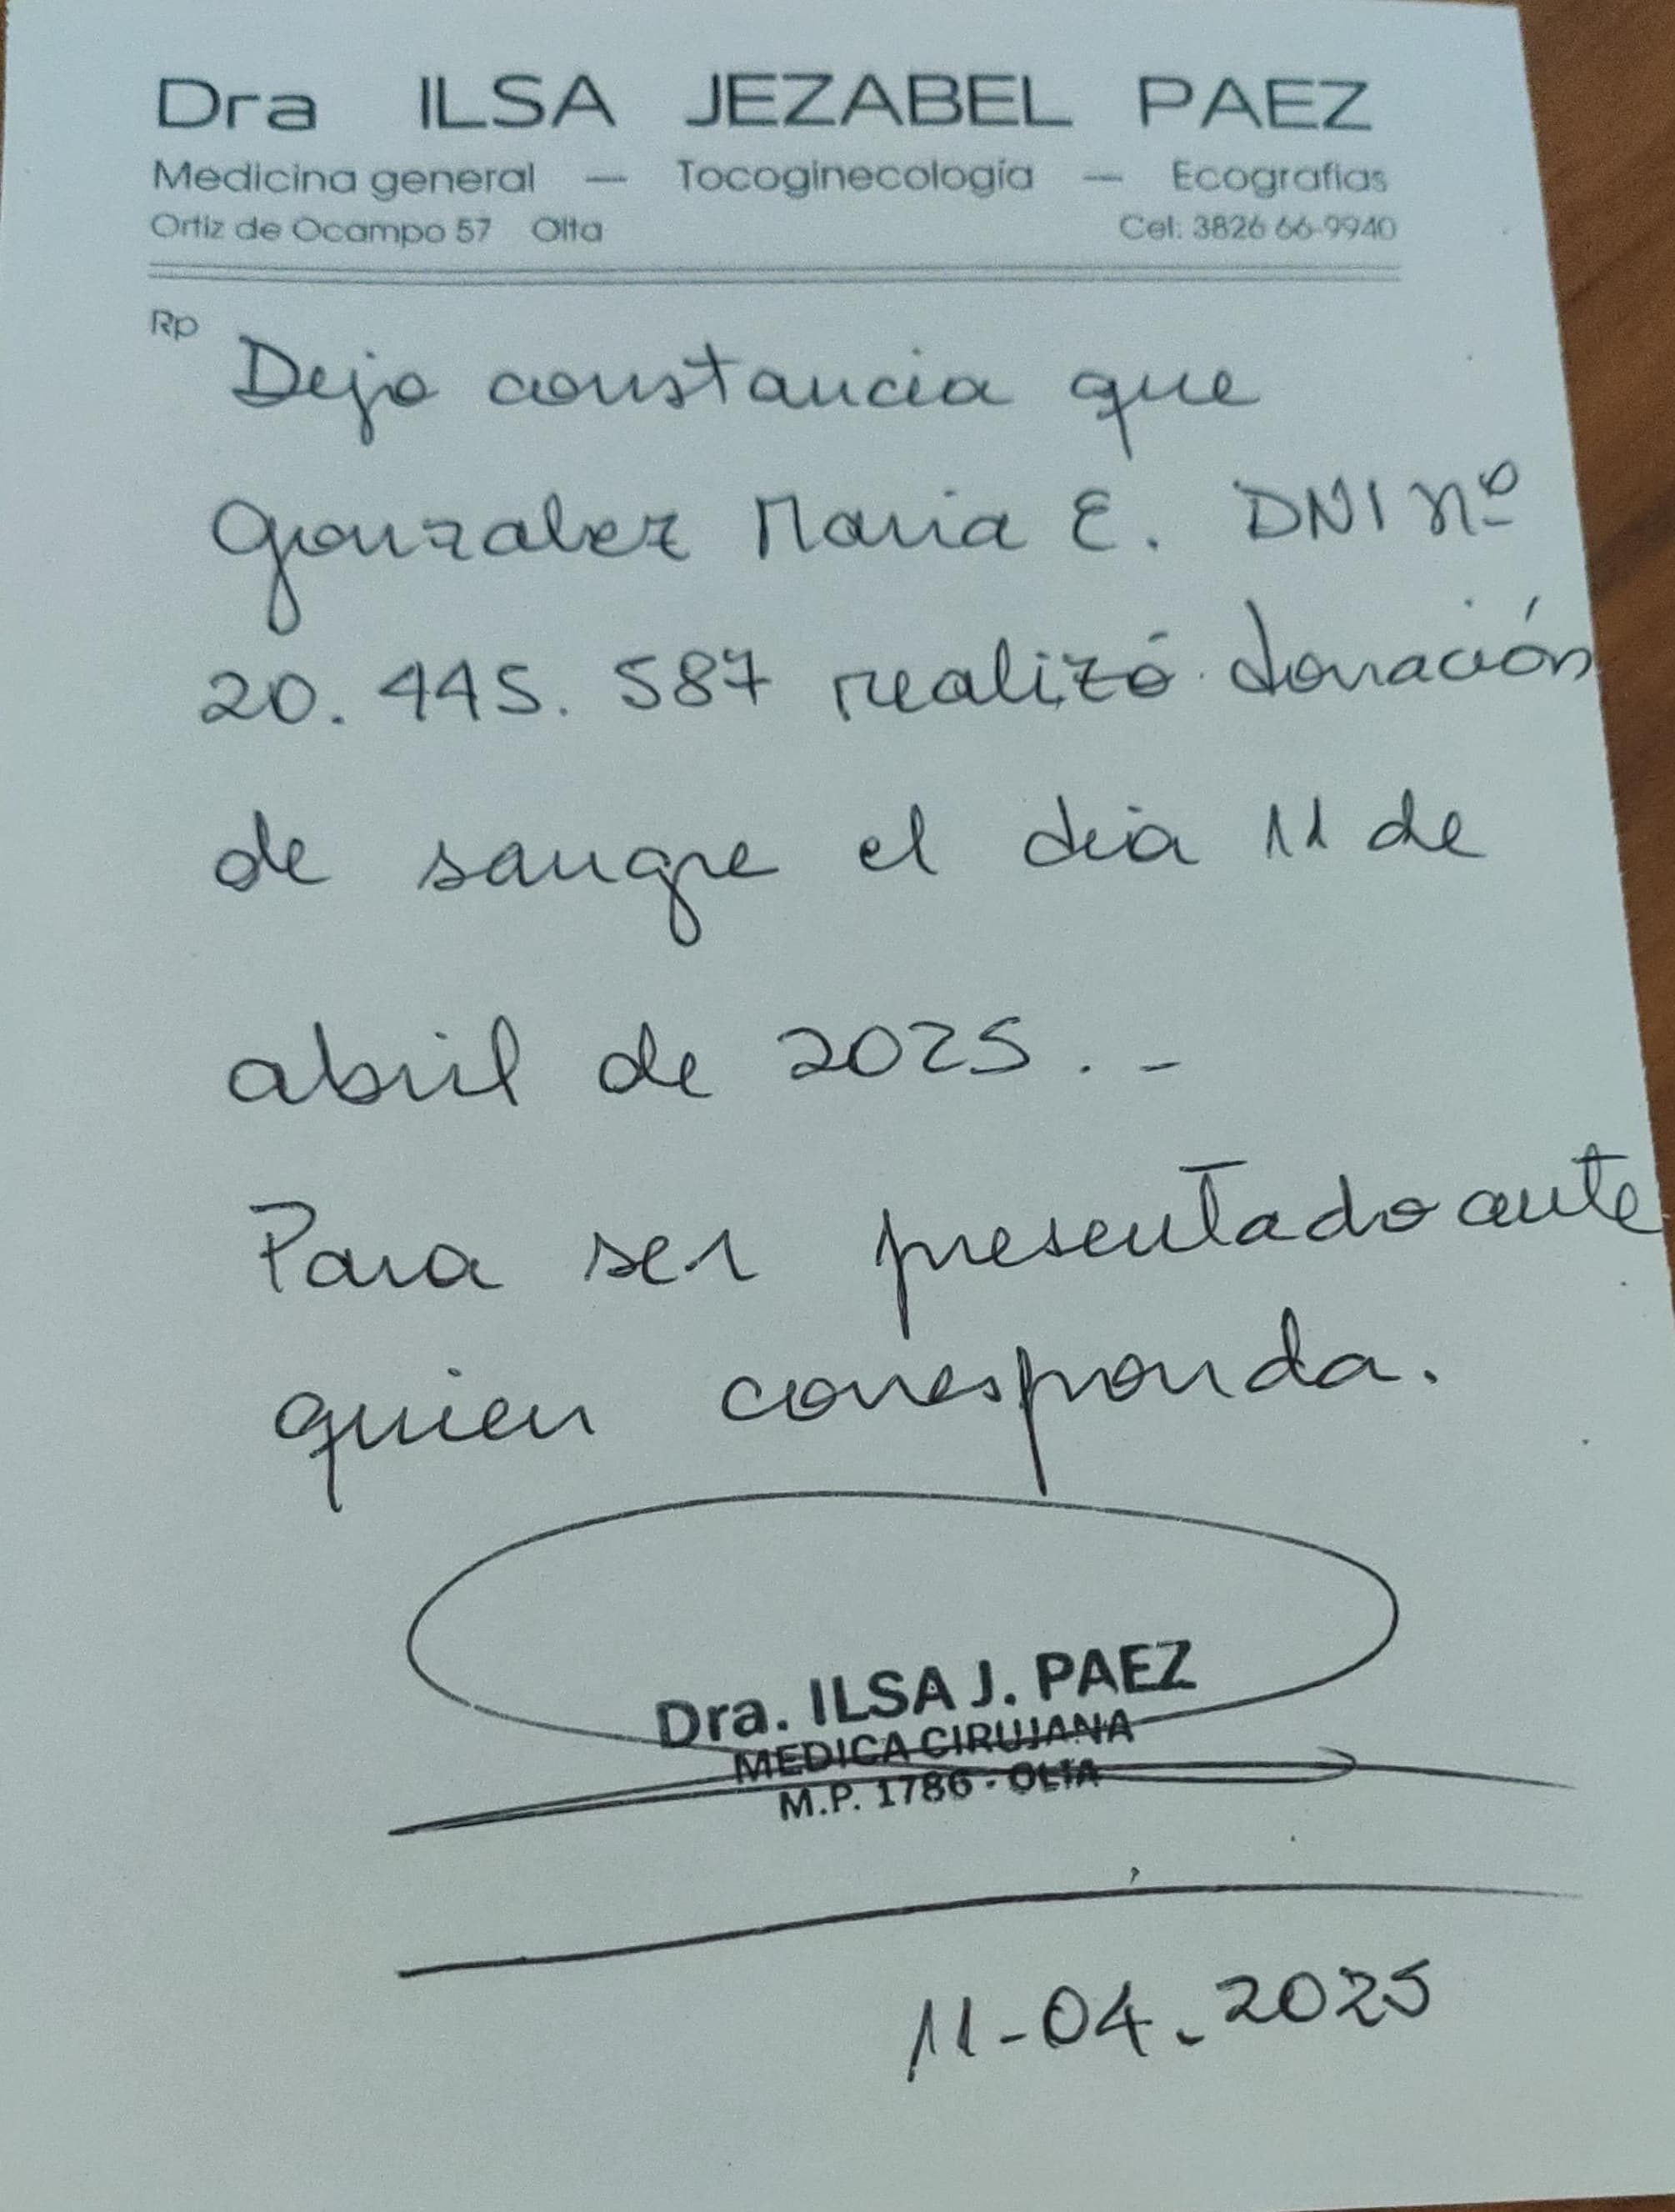 Dra ILSA JEZABEL PAEZ
Medicina general — Tocoginecología — Ecografias
Ortiz de Ocampo 57 Olta Cel: 3826 66-9940
Rp
Dejo constancia que
Gonzalez Maria E. DNI Nº
20.445.587 realizó donación
de sangre el dia 11 de
abril de 2025.-
Para ser presentado ante
quien corresponda.
Dra. ILSA J. PAEZ
MEDICA CIRUJANA
M.P. 1786 - OLTA
11-04-2025